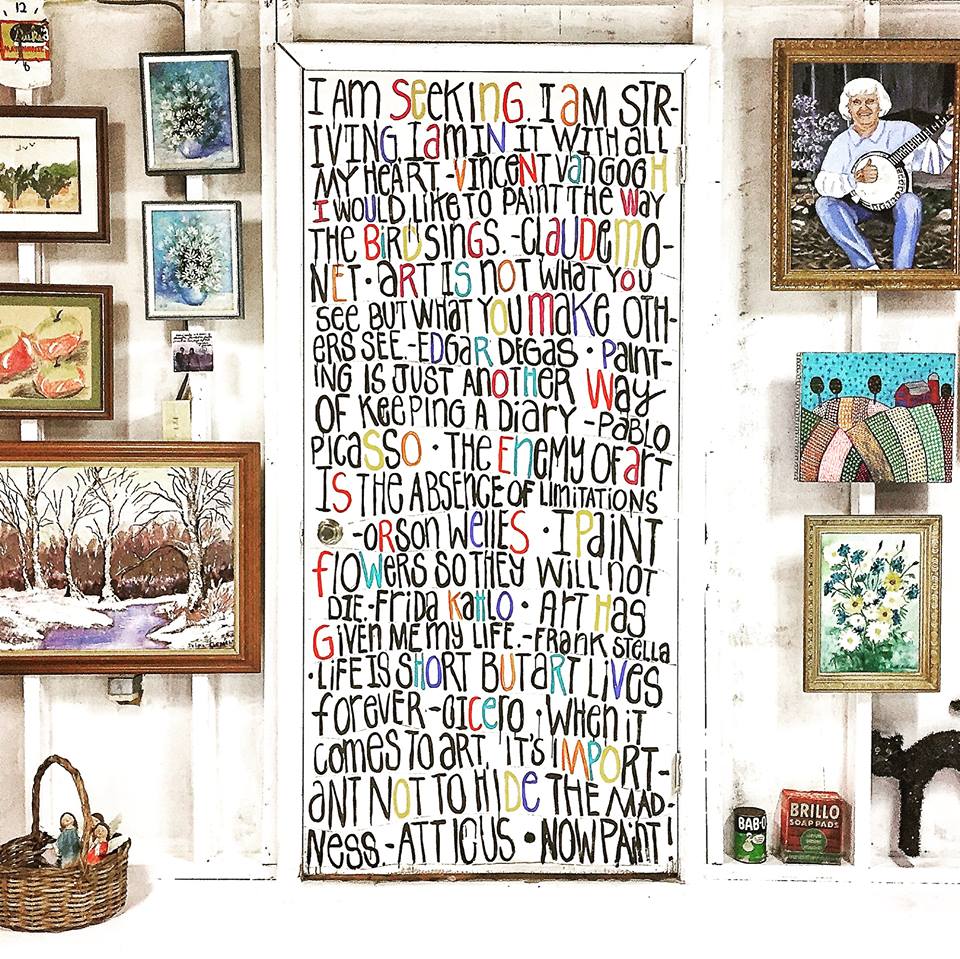 12
6
I AM SEEKING. I AM STR-
IVING I AM IN IT WITH ALL
MY HEART -VINCENT VAN GOGH
I WOULD LIKE TO PAINT THE WAY
THE BIRD SINGS. -CLAUDE MO-
NET · ART IS NOT WHAT YOU
SEE BUT WHAT YOU MAKE OTH-
ERS SEE.-EDGAR DEGAS · PAINT-
ING IS JUST ANOTHER WAY
OF KEEPING A DIARY -PABLO
PICASSO · THE ENEMY OF ART
IS THE ABSENCE OF LIMITATIONS
-ORSON WELLES · I PAINT
FLOWERS SO THEY WILL NOT
DIE.-FRIDA KAHLO · ART HAS
GIVEN ME MY LIFE.-FRANK STELLA
·LIFE IS SHORT BUT ART LIVES
FOREVER-CICERO · WHEN IT
COMES TO ART, IT'S IMPORT-
ANT NOT TO HIDE THE MAD-
NESS.-ATTICUS · NOW PAINT!
BAB-O
BRILLO
SOAP PADS